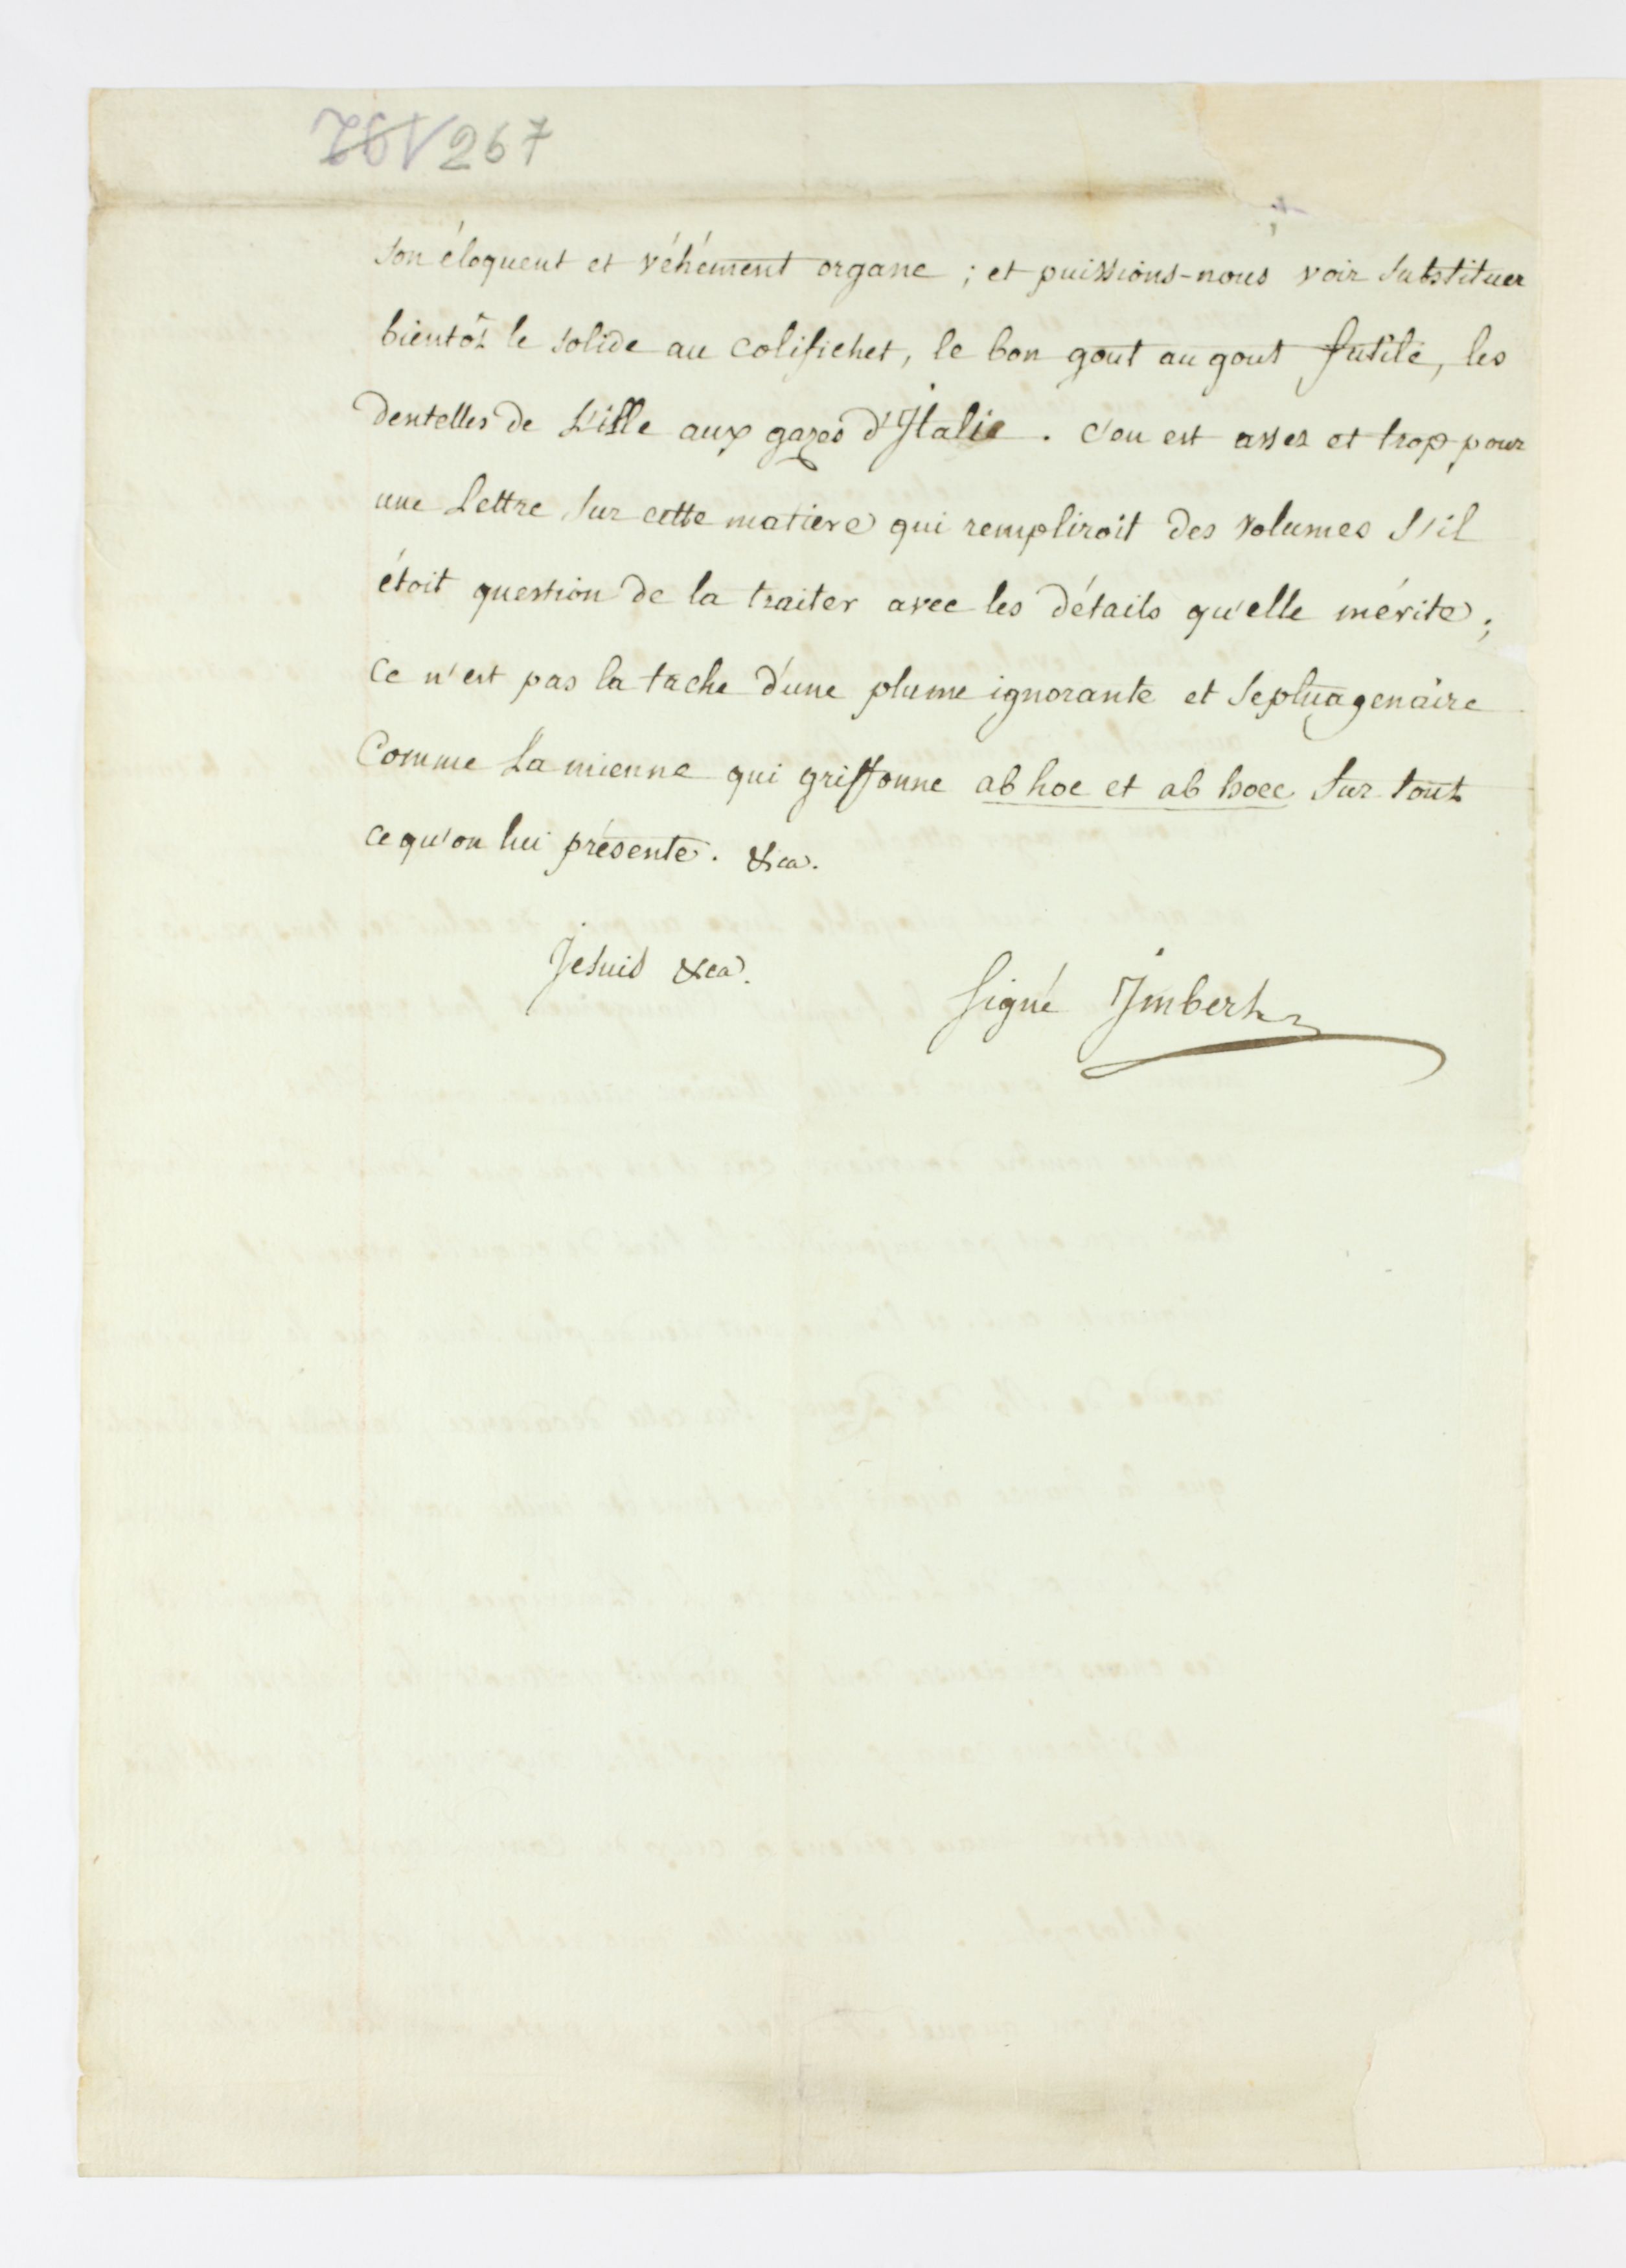 267
son éloquent et véhément organe ; et puissions-nous voir substituer
bientôt le solide au colifichet, le bon gout au gout futile, les
dentelles de L'isle aux gazes d'Italie . c'en est assez et trop pour
une Lettre sur cette matiere qui rempliroit des volumes s'il
étoit question de la traiter avec les détails qu'elle mérite ;
Ce n'est pas la tache d'une plume ignorante et septuagenaire
Comme La mienne qui griffonne ab hoc et ab hoec sur tout
ce qu'on lui présente . &ca.
Je suis &ca.
signé Imbert